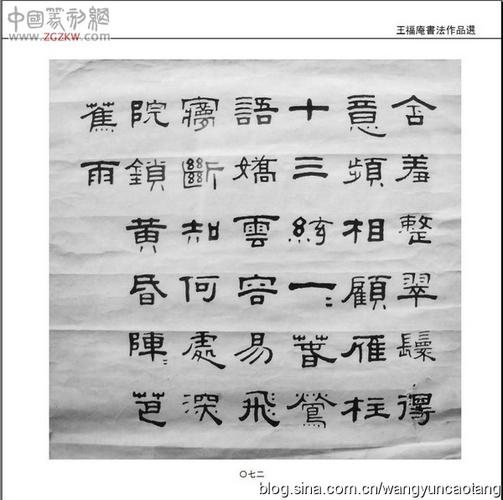 中國篆刻網
www.ZGZKW.com
王福庵書法作品選
含羞整翠鬟得
意頻相顧雁柱
十三絃一〻春鶯
語嬌雲容易飛
夢斷知何處深
院鎖黃昏陣〻芭
蕉雨
〇七二
blog.sina.com.cn/wangyuncaotang